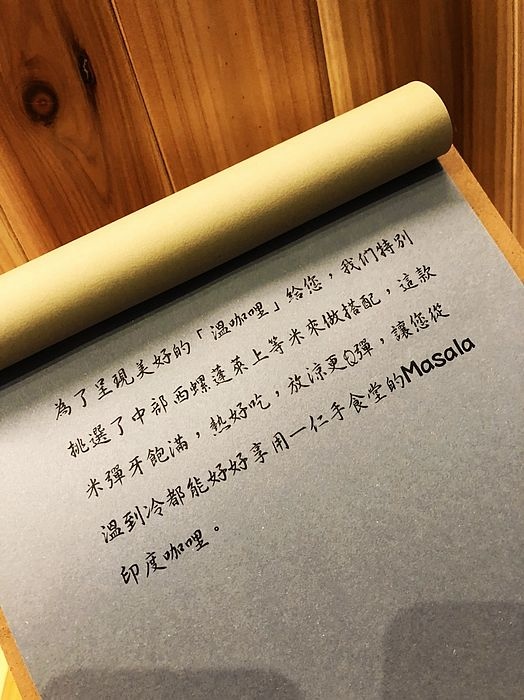 為了呈現美好的「溫咖哩」給您，我們特別
挑選了中部西螺蓬萊上等米來做搭配，這款
米彈牙飽滿，熱好吃，放涼更Q彈，讓您從
溫到冷都能好好享用一仁手食堂的Masala
印度咖哩。